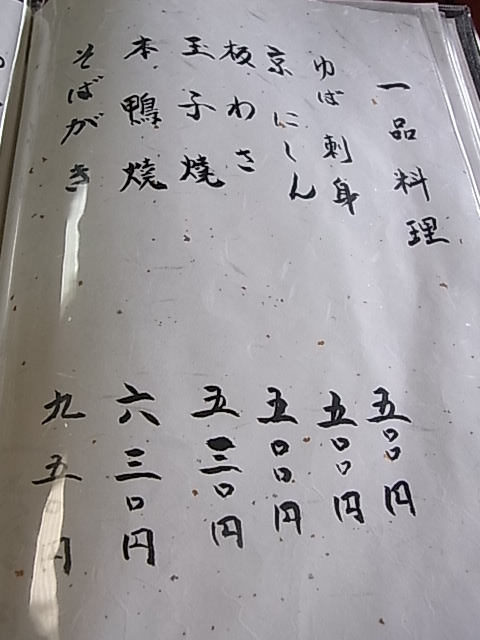 一品料理
ゆば刺身 五〇〇円
京にしん 五〇〇円
板わさ 五〇〇円
玉子焼 五三〇円
本鴨焼 六三〇円
そばがき 九五〇円